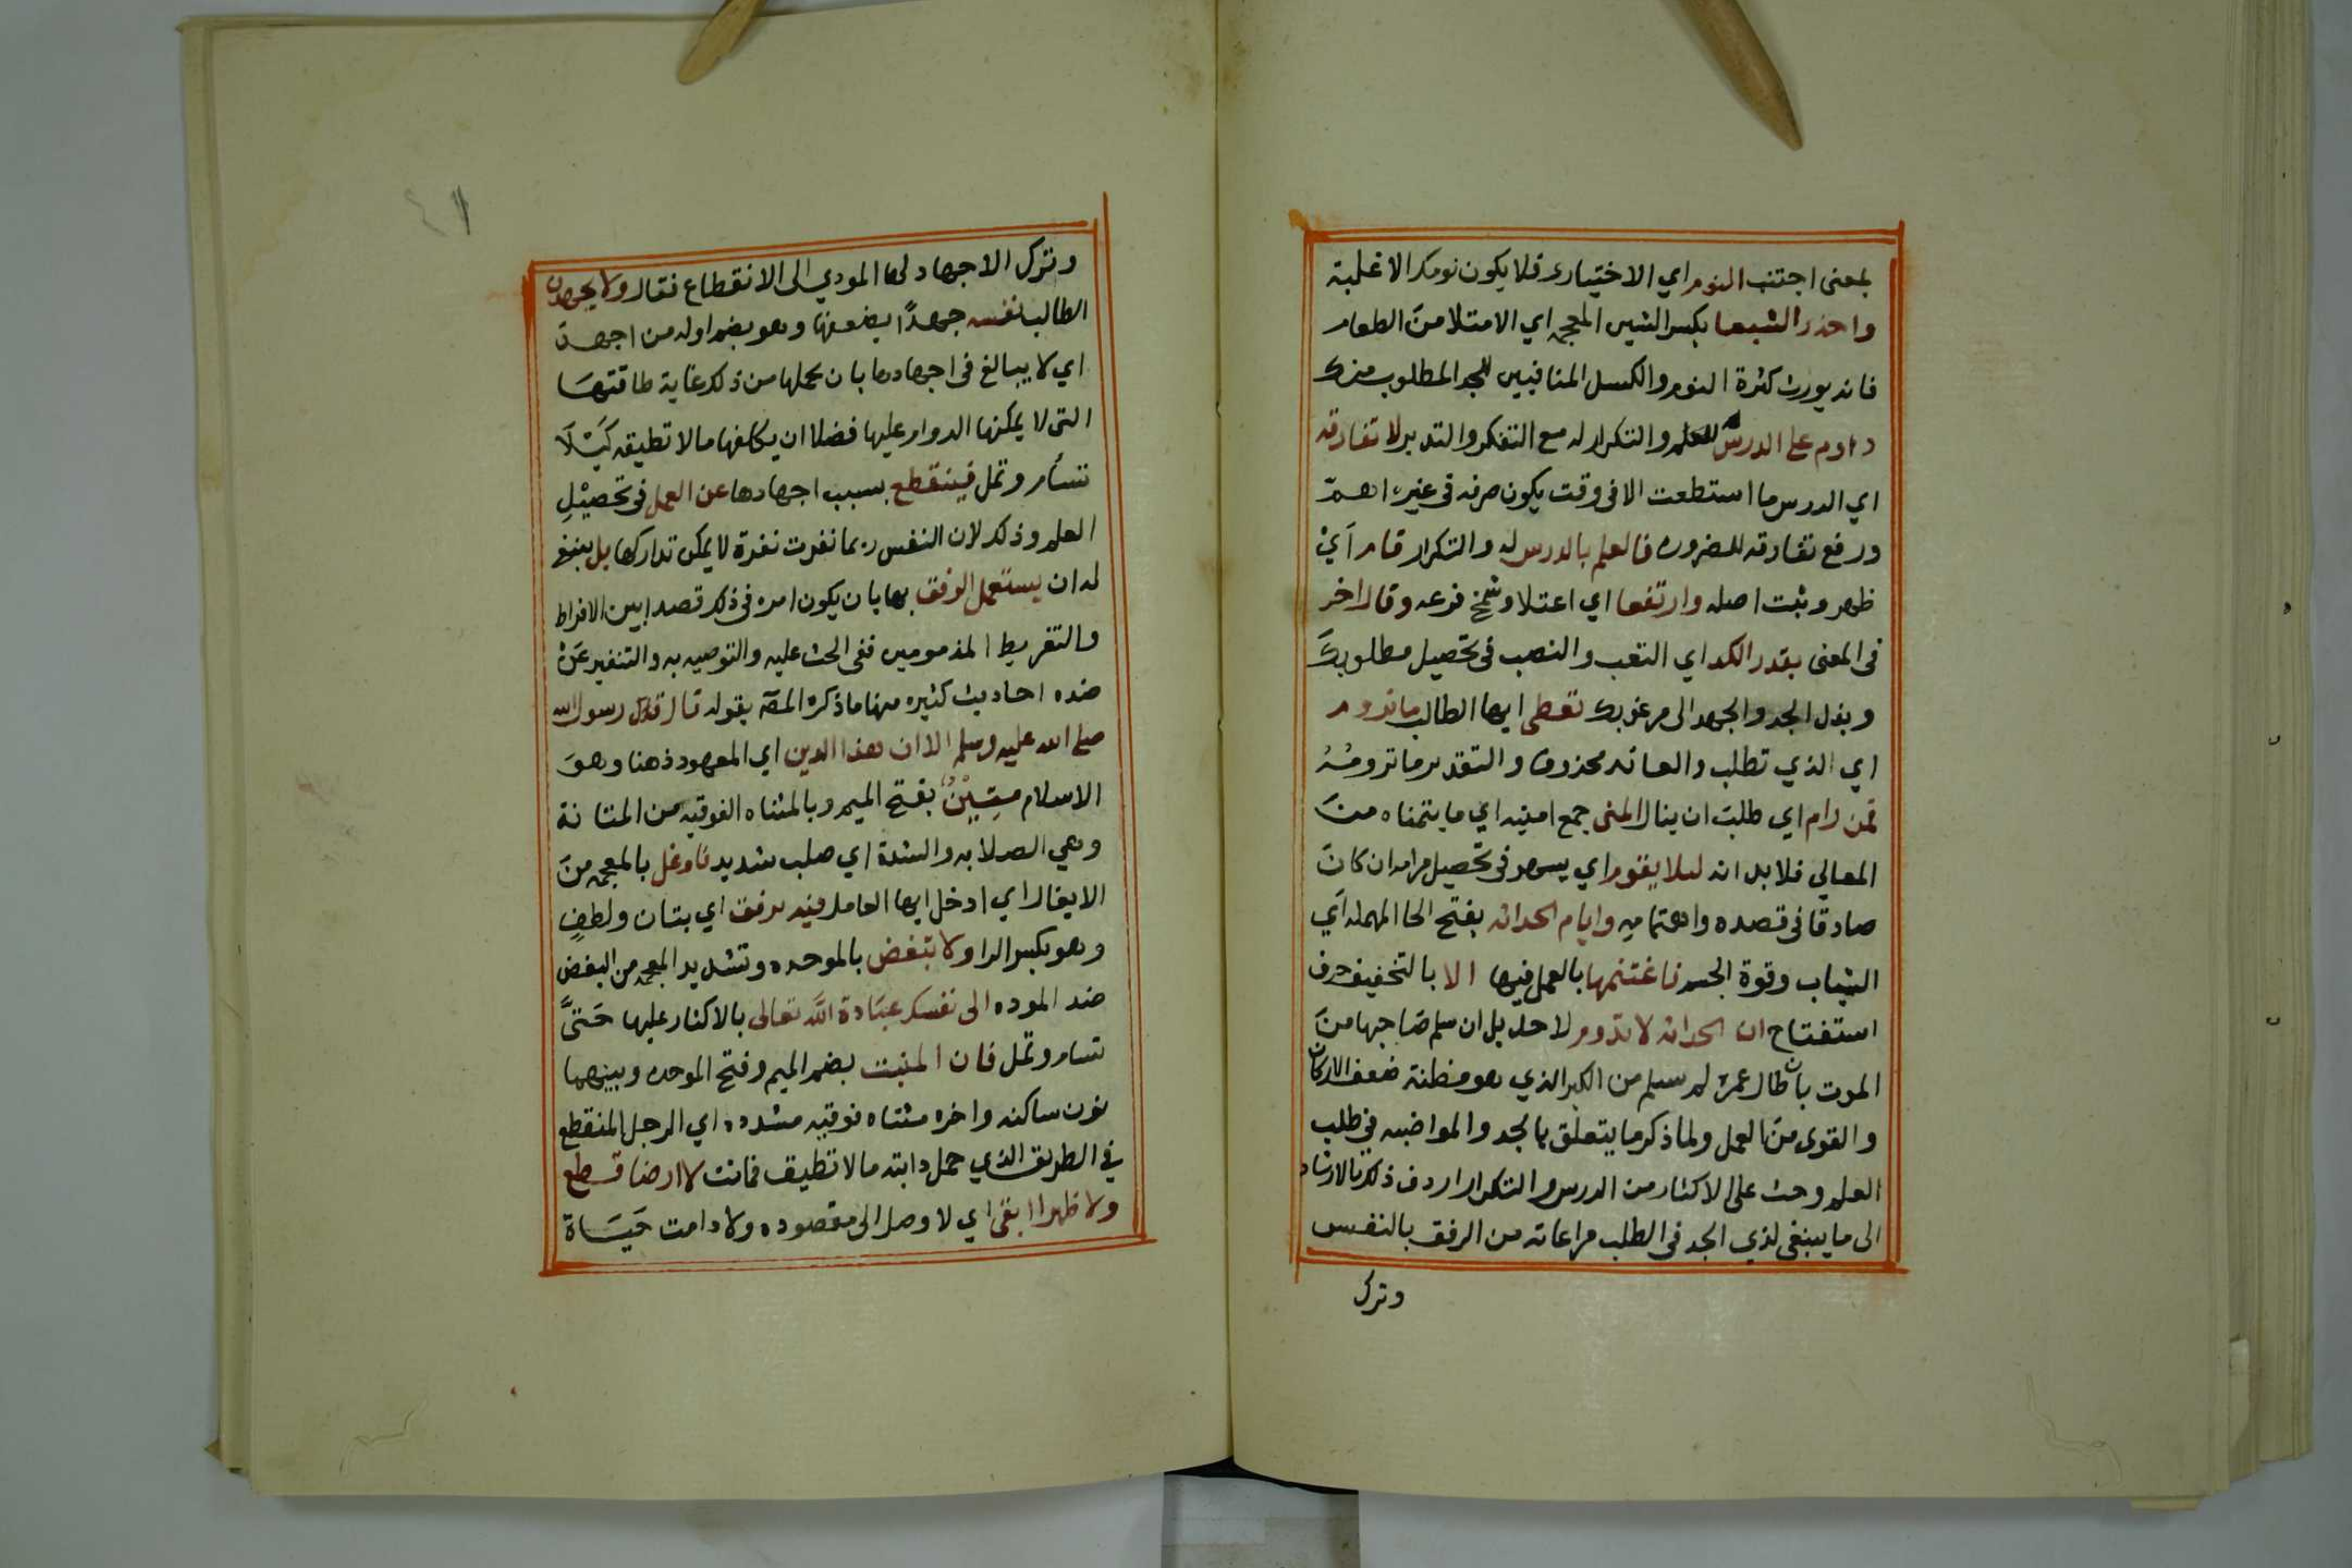 بمعنى اجتنب النوم اي الاختياري فلا يكون نومك الا غلبة
واحذر الشبعا بكسر الشين المعجمه اي الامتلا من الطعام
فانه يورث كثرة النوم والكسل المنافيين للجد المطلوب منك
داوم على الدرس للعلم والتكرار له مع التفكر والتدبر لا تفارقه
اي الدرس ما استطعت الا في وقت يكون صرفه في غيره اهم
ورفع تفارقه للضروره فالعلم بالدرس له والتكرار قام اي
ظهر وثبت اصله وارتفعا اي اعتلا وشمخ فرعه وقال اخر
في المعنى بقدر الكد اي التعب والنصب في تحصيل مطلوبك
وبذل الجد والجهد الى مرغوبك تعطى ايها الطالب ما تروم
اي الذي تطلب والعائد محذوف والتقدير ما ترومه
فمن رام اي طلب ان ينال المنى جمع امنيه اي ما يتمناه من
المعالي فلا بد انه ليلا يقوم اي يسهر في تحصيل مرامه ان كان
صادقا في قصده واهتمامه وايام الحداثه بفتح الحا المهمله اي
الشباب وقوة الجسم فاغتنمها بالعمل فيها الا بالتخفيف حرف
استفتاح ان الحداثه لا تدوم لاحد بل ان سلم صاحبها من
الموت بان طال عمره لم يسلم من الكبر الذي هو مظنة ضعف الاركان
والقوى من العمل ولما ذكر ما يتعلق بالجد والمواضبه في طلب
العلم وحث على الاكثار من الدرس والتكرار اردف ذلك بالارشاد
الى ما ينبغي لذي الجد في الطلب مراعاته من الرفق بالنفس
وترك
٤١
وترك الاجهاد لها المودي الى الانقطاع فقال ولا يجهدن
الطالب نفسه جهدًا يضعفها وهو بضم اوله من اجهد
اي لا يبالغ في اجهادها بان يحملها من ذلك غاية طاقتها
التي لا يمكنها الدوام عليها فضلا ان يكلفها ما لا تطيقه كيلا
تسأم وتمل فينقطع بسبب اجهادها عن العمل في تحصيل
العلم وذلك لان النفس ربما نفرت نفرة لا يمكن تداركها بل ينبغي
له ان يستعمل الرفق بها بان يكون امره في ذلك قصدا بين الافراط
والتفريط المذمومين ففي الحث عليه والتوصيه به والتنفير عن
ضده احاديث كثيره منها ما ذكره المصه بقوله قال رسول الله
صلى الله عليه وسلم الا ان هذا الدين اي المعهود ذهنا وهو
الاسلام متين بفتح الميم وبالمثناه الفوقيه من المتانة
وهي الصلابه والشدة اي صلب شديد فاوغل بالمعجمه من
الايغال اي ادخل ايها العامل فيه برفق اي بتان ولطف
وهو بكسر الرا ولا تبغض بالموحده وتشديد المعجمه من البغض
ضد الموده الى نفسك عبادة الله تعالى بالاكثار عليها حتى
تسام وتمل فان المنبت بضم الميم وفتح الموحده وبينهما
نون ساكنه واخره مثناه فوقيه مشدده اي الرجل المنقطع
في الطريق الذي حمل دابته ما لا تطيق فماتت لا ارضا قطع
ولا ظهرا ابقى اي لا وصل الى مقصوده ولا دامت حياة